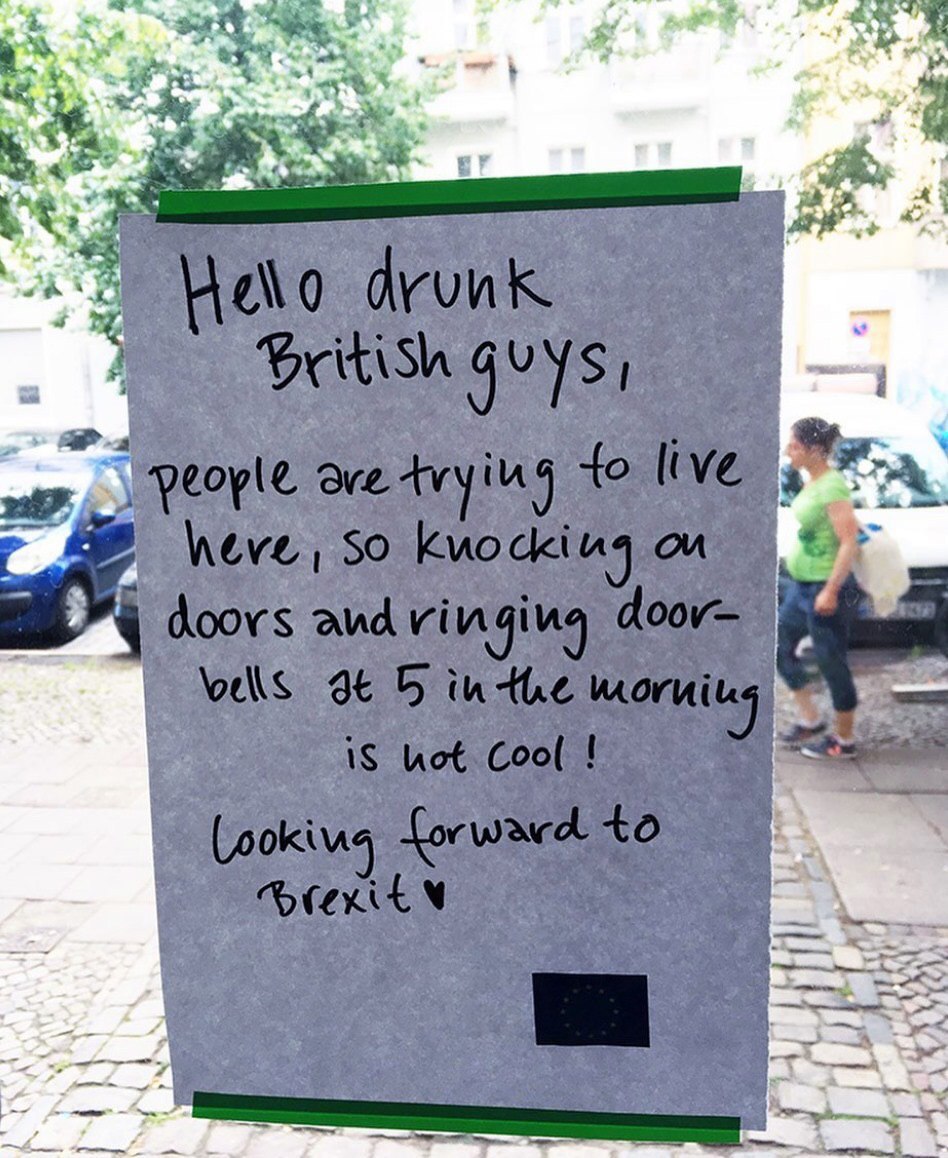 Hello drunk
British guys,
people are trying to live
here, so knocking on
doors and ringing door-
bells at 5 in the morning
is not cool!
Looking forward to
Brexit ♥